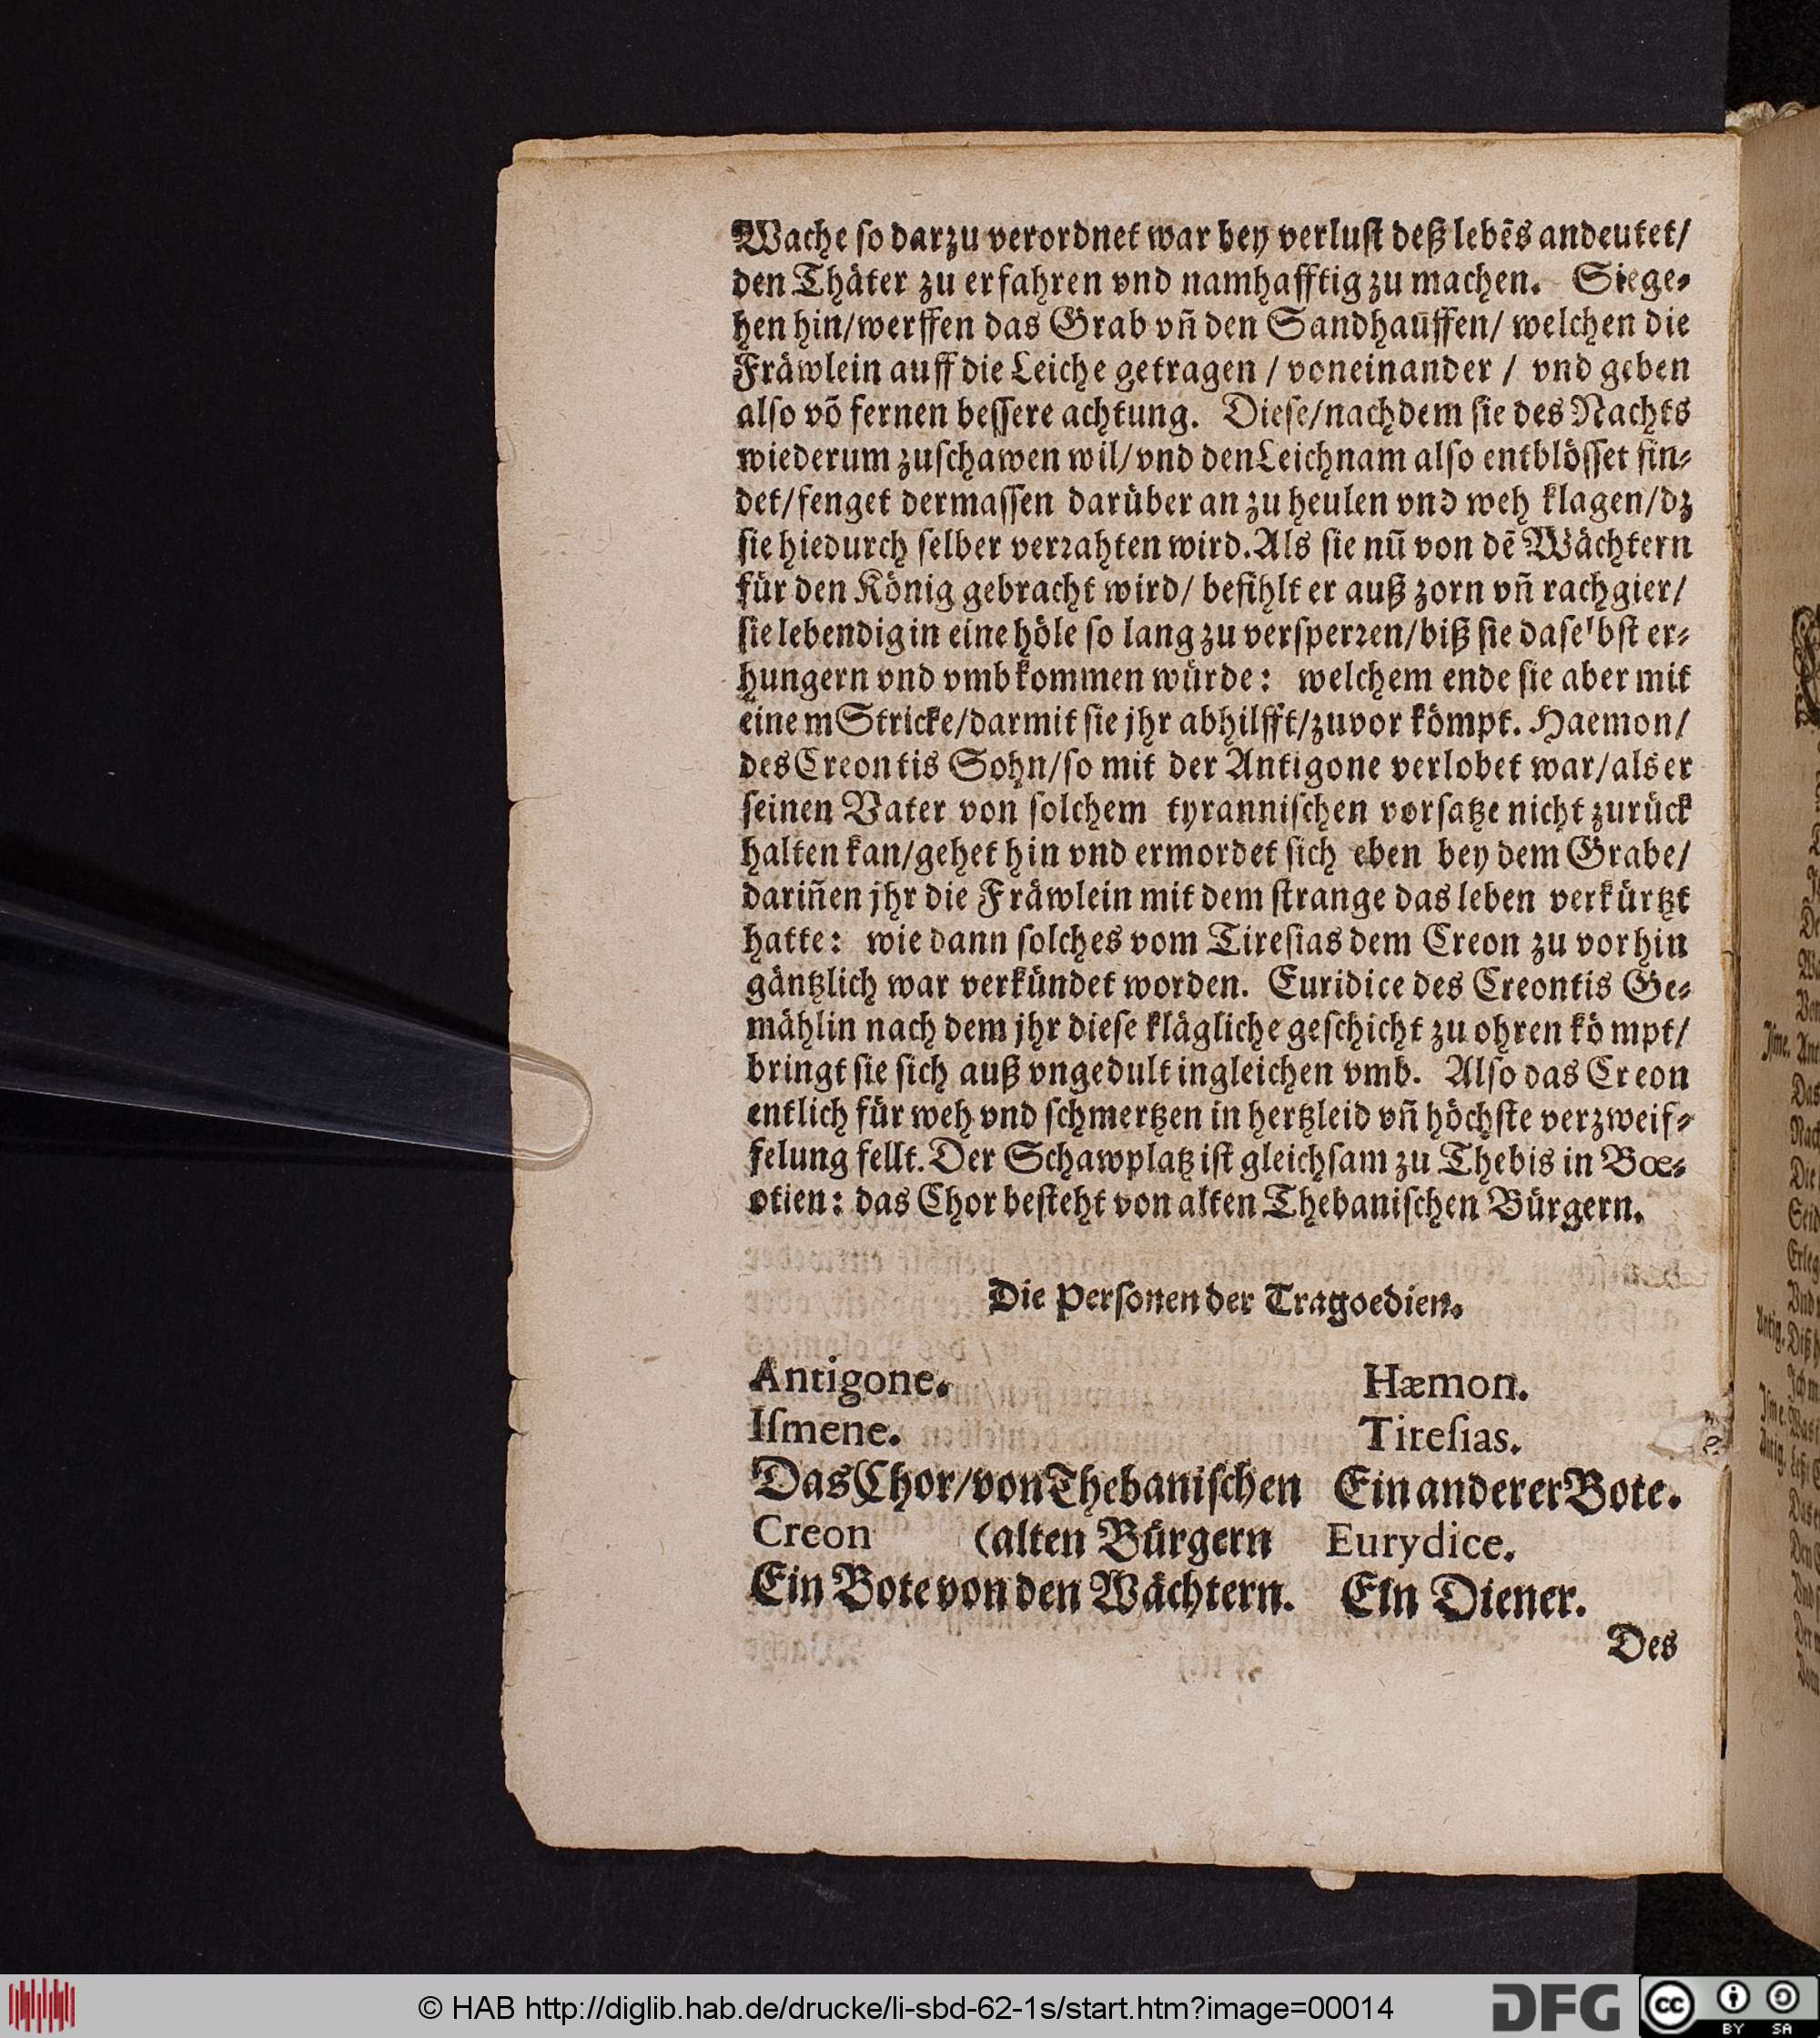 Wache ſo darzu verordnet war bey verluſt deß lebẽs andeutet/
den Thäter zu erfahren vnd namhafftig zu machen. Sie ge⸗
hen hin/werffen das Grab vñ den Sandhauffen/ welchen die
Fräwlein auff die Leiche getragen / voneinander / vnd geben
alſo võ fernen beſſere achtung. Dieſe/nachdem ſie des Nachts
wiederum zuſchawen wil/vnd den Leichnam alſo entblöſſet fin⸗
det/fenget dermaſſen darüber an zu heulen vnd weh klagen/dz
ſie hiedurch ſelber verꝛahten wird. Als ſie nũ von dẽ Wächtern
für den König gebracht wird/ befihlt er auß zorn vñ rachgier/
ſie lebendig in eine höle ſo lang zu verſperꝛen/biß ſie daſelbſt er⸗
hungern vnd vmbkommen würde: welchem ende ſie aber mit
einem Stricke/darmit ſie jhr abhilfft/zuvor kömpt. Haemon/
des Creontis Sohn/ſo mit der Antigone verlobet war/als er
ſeinen Vater von ſolchem tyranniſchen vorſatze nicht zurück
halten kan/gehet hin vnd ermordet ſich eben bey dem Grabe/
dariñen jhr die Fräwlein mit dem ſtrange das leben verkürtzt
hatte: wie dann ſolches vom Tireſias dem Creon zu vorhin
gäntzlich war verkündet worden. Euridice des Creontis Ge⸗
mählin nach dem jhr dieſe klägliche geſchicht zu ohren kömpt/
bringt ſie ſich auß vngedult ingleichen vmb. Alſo das Creon
entlich für weh vnd ſchmertzen in hertzleid vñ höchſte verzweif⸗
felung fellt. Der Schawplatz iſt gleichſam zu Thebis in Bœ⸗
otien: das Chor beſteht von alten Thebaniſchen Bürgern.
Die Perſonen der Tragoedien.
Antigone. Hæmon.
Iſmene. Tireſias.
Das Chor/von Thebaniſchen Ein anderer Bote.
Creon (alten Bürgern Eurydice.
Ein Bote von den Wächtern. EIn Diener.
Des
© HAB http://diglib.hab.de/drucke/li-sbd-62-1s/start.htm?image=00014
DFG
cc BY SA